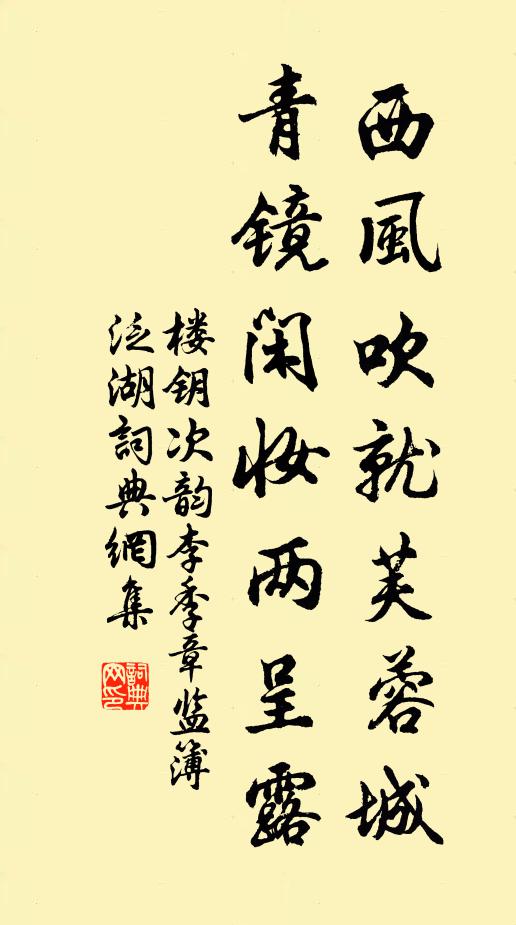 西風吹就芙蓉城
青镜闲妆两呈露
楼钥次韵李季章监簿
泛湖詞典網集
詞典
网印